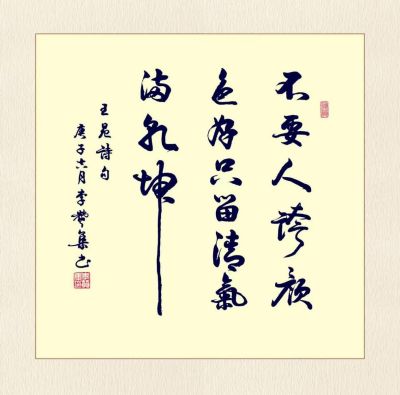 不要人誇顏
色好只留清氣
滿乾坤
王冕詩句
庚子六月李集书